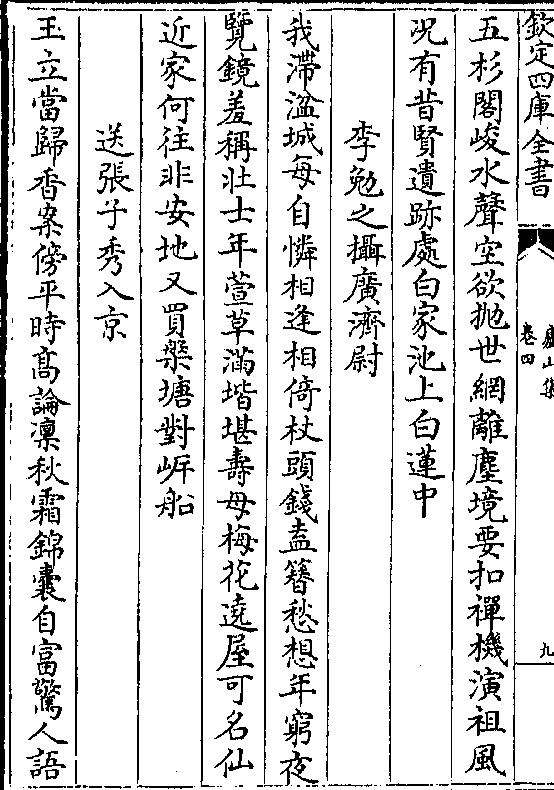 欽定四庫全書
廬山集
卷四
九
五杉閣峻水聲空欲抛世網離塵境要扣禪機演祖風
况有昔賢遺跡處白家池上白蓮中
李勉之攝廣濟尉
我滯湓城每自憐相逢相倚杖頭錢盍簪愁想年窮夜
覽鏡羞稱壯士年萱草滿堦堪壽母梅花遶屋可名仙
近家何往非安地又買槳塘對㟁船
送張子秀入京
玉立當歸香案傍平時髙論凜秋霜錦囊自富驚人語